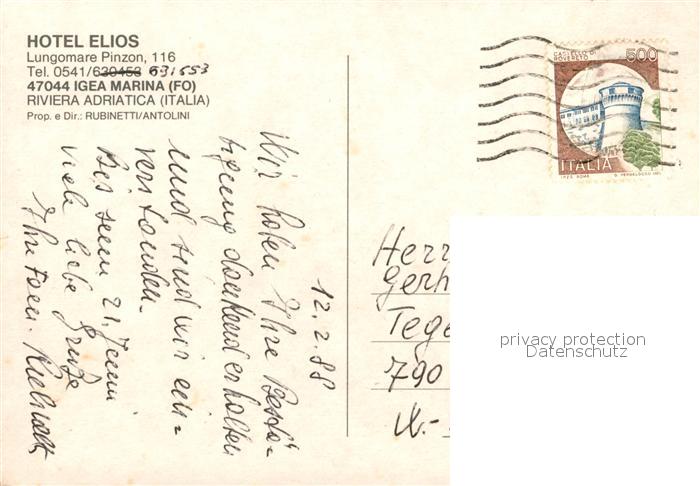 HOTEL ELIOS
Lungomare Pinzon, 116
Tel. 0541/630453 631553
47044 IGEA MARINA (FO)
RIVIERA ADRIATICA (ITALIA)
Prop. e Dir.: RUBINETTI/ANTOLINI
12.2.88
Wir haben Ihre Bestä-
tigung dankend erhalten
und sind wir ein-
verstanden.
Bis zum 21. Juni
viele liebe Grüße
Ihre Fam.
CASTELLO DI
ROVERETO
500
ITALIA
Herr
Gerh
Tege
790
W.-
privacy protection
Datenschutz